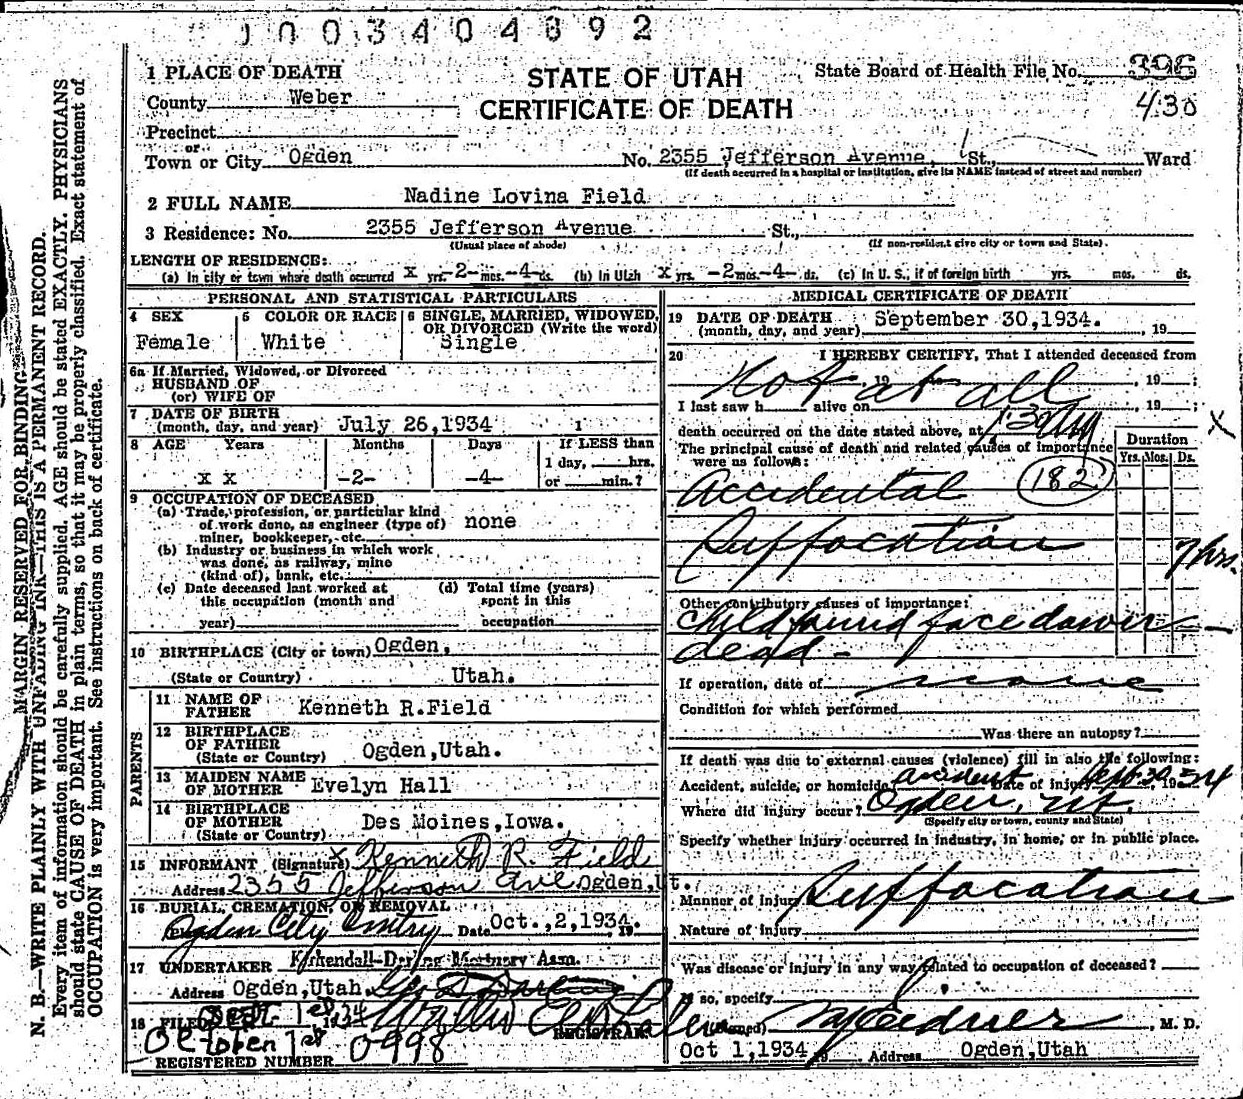 1003404892
1 PLACE OF DEATH
STATE OF UTAH
CERTIFICATE OF DEATH
State Board of Health File No. 396
430
County Weber
Precinct
or
Town or City Ogden No. 2355 Jefferson Avenue, St., Ward
(If death occurred in a hospital or institution, give its NAME instead of street and number)
2 FULL NAME Nadine Lovina Field
3 Residence: No. 2355 Jefferson Avenue St.,
(Usual place of abode) (If non-resident give city or town and State).
LENGTH OF RESIDENCE:
(a) In city or town where death occurred X yrs. -2- mos. -4- ds. (b) In Utah X yrs. -2 mos. -4- ds. (c) In U. S., if of foreign birth yrs. mos. ds.
PERSONAL AND STATISTICAL PARTICULARS
4 SEX
Female
5 COLOR OR RACE
White
6 SINGLE, MARRIED, WIDOWED, OR DIVORCED (Write the word)
Single
6a If Married, Widowed, or Divorced
HUSBAND OF
(or) WIFE OF
7 DATE OF BIRTH
(month, day, and year) July 26,1934
8 AGE Years Months Days If LESS than
1 day, hrs.
X X -2- -4- or min.?
9 OCCUPATION OF DECEASED
(a) Trade, profession, or particular kind
of work done, as engineer (type of) none
miner, bookkeeper, etc.
(b) Industry or business in which work
was done, as railway, mine
(kind of), bank, etc.
(c) Date deceased last worked at (d) Total time (years)
this occupation (month and spent in this
year) occupation
10 BIRTHPLACE (City or town) Ogden,
(State or Country) Utah.
PARENTS
11 NAME OF
FATHER Kenneth R.Field
12 BIRTHPLACE
OF FATHER Ogden,Utah.
(State or Country)
13 MAIDEN NAME
OF MOTHER Evelyn Hall
14 BIRTHPLACE
OF MOTHER Des Moines,Iowa.
(State or Country)
15 INFORMANT (Signature) x Kenneth R. Field
Address 2355 Jefferson Ave Ogden,Ut.
16 BURIAL, CREMATION, OR REMOVAL
Ogden City Cmtry Date Oct.,2,1934. 19
17 UNDERTAKER Kirkendall-Darling Mortuary Assn.
Address Ogden,Utah Geo D Darling
18 FILED 1st 1934
REGISTRAR
October 1st
REGISTERED NUMBER 0998
MEDICAL CERTIFICATE OF DEATH
19 DATE OF DEATH
(month, day, and year) September 30,1934. , 19
20 I HEREBY CERTIFY, That I attended deceased from
Not at all , 19 ;
I last saw h alive on , 19 ;
death occurred on the date stated above, at 1:30
X
The principal cause of death and related causes of importance
were as follows:
Duration
Yrs. Mos. Ds.
Accidental 182
Suffocation 7 hrs.
Other contributory causes of importance:
Child found face down
dead -
If operation, date of none
Condition for which performed
Was there an autopsy?
If death was due to external causes (violence) fill in also the following:
Accident, suicide, or homicide? accident Date of injury Sept 30, 1934
Where did injury occur? Ogden, Ut
(Specify city or town, county and State)
Specify whether injury occurred in industry, in home, or in public place.
Manner of injury Suffocation
Nature of injury
Was disease or injury in any way related to occupation of deceased?
If so, specify
(Signed) , M. D.
Oct 1,1934 19 Address Ogden,Utah
MARGIN RESERVED FOR BINDING
N. B.—WRITE PLAINLY WITH UNFADING INK—THIS IS A PERMANENT RECORD.
Every item of information should be carefully supplied. AGE should be stated EXACTLY. PHYSICIANS
should state CAUSE OF DEATH in plain terms, so that it may be properly classified. Exact statement of
OCCUPATION is very important. See instructions on back of certificate.